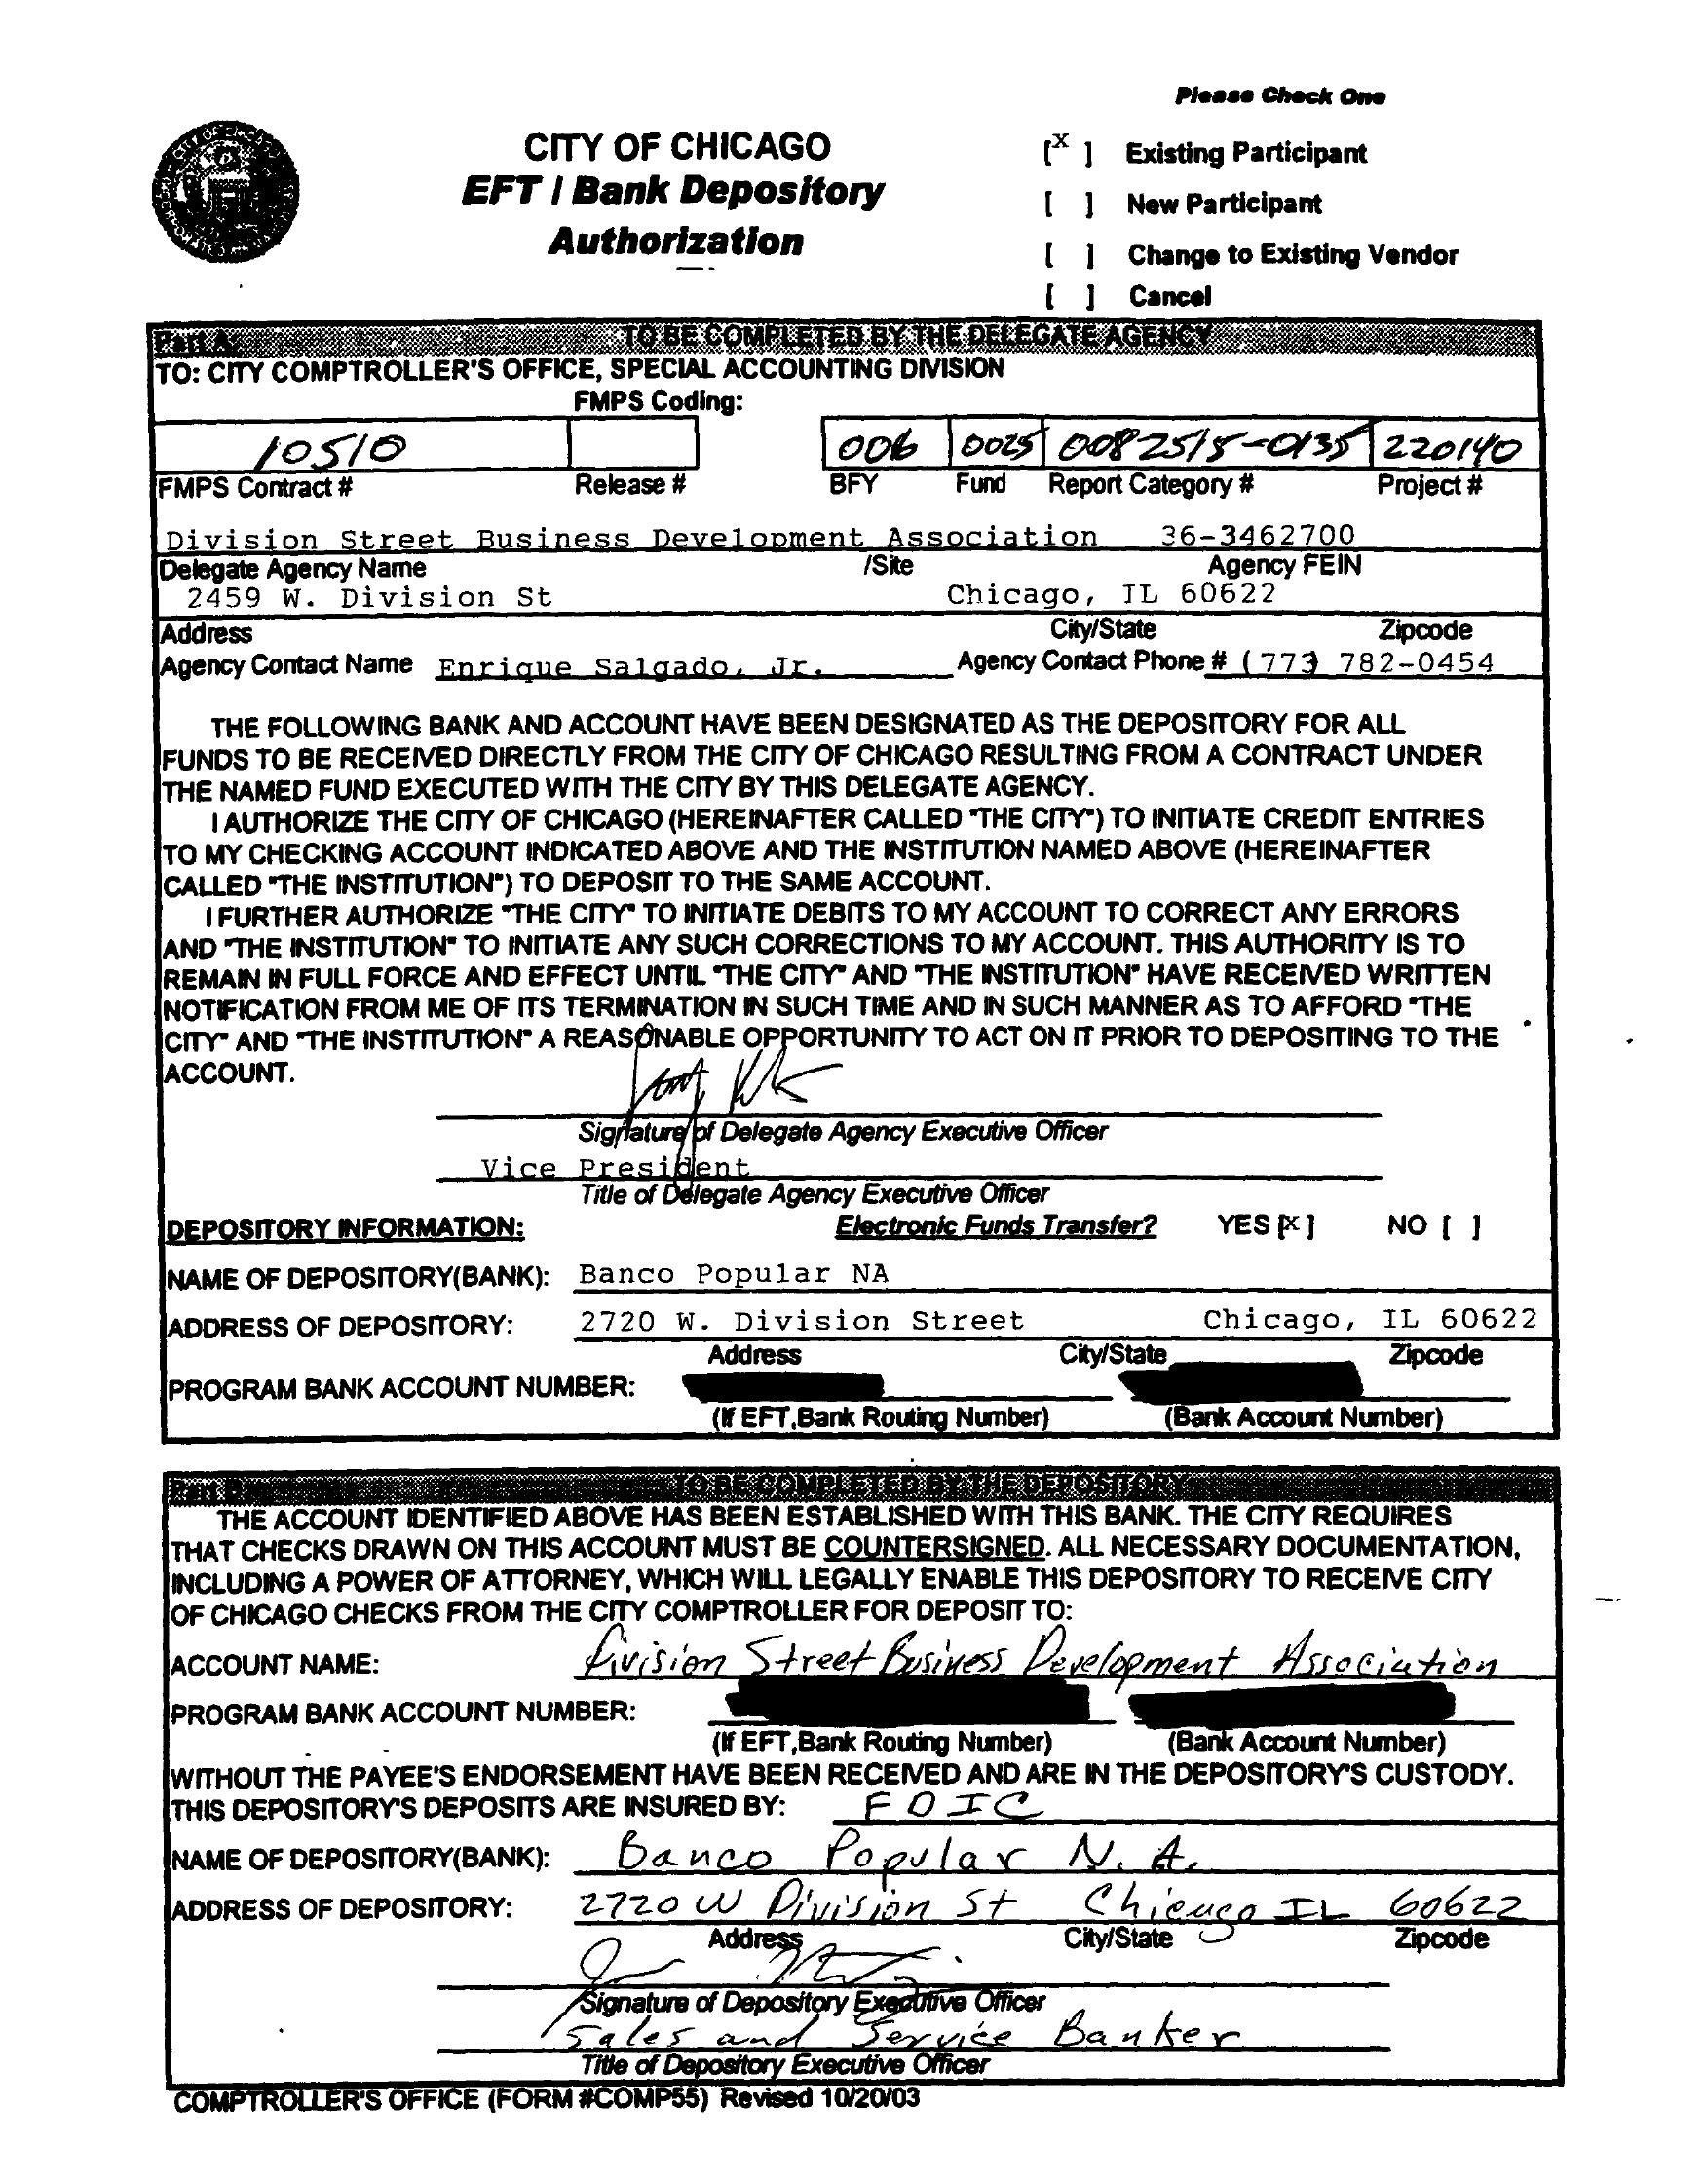 Please Check One
CITY OF CHICAGO
EFT / Bank Depository
Authorization
[x] Existing Participant
[ ] New Participant
[ ] Change to Existing Vendor
[ ] Cancel
Part A: TO BE COMPLETED BY THE DELEGATE AGENCY
TO: CITY COMPTROLLER'S OFFICE, SPECIAL ACCOUNTING DIVISION
FMPS Coding:
10510 006 0025 0082515-0135 220140
FMPS Contract # Release # BFY Fund Report Category # Project #
Division Street Business Development Association 36-3462700
Delegate Agency Name /Site Agency FEIN
2459 W. Division St Chicago, IL 60622
Address City/State Zipcode
Agency Contact Name Enrique Salgado, Jr. Agency Contact Phone # (773) 782-0454
THE FOLLOWING BANK AND ACCOUNT HAVE BEEN DESIGNATED AS THE DEPOSITORY FOR ALL
FUNDS TO BE RECEIVED DIRECTLY FROM THE CITY OF CHICAGO RESULTING FROM A CONTRACT UNDER
THE NAMED FUND EXECUTED WITH THE CITY BY THIS DELEGATE AGENCY.
I AUTHORIZE THE CITY OF CHICAGO (HEREINAFTER CALLED "THE CITY") TO INITIATE CREDIT ENTRIES
TO MY CHECKING ACCOUNT INDICATED ABOVE AND THE INSTITUTION NAMED ABOVE (HEREINAFTER
CALLED "THE INSTITUTION") TO DEPOSIT TO THE SAME ACCOUNT.
I FURTHER AUTHORIZE "THE CITY" TO INITIATE DEBITS TO MY ACCOUNT TO CORRECT ANY ERRORS
AND "THE INSTITUTION" TO INITIATE ANY SUCH CORRECTIONS TO MY ACCOUNT. THIS AUTHORITY IS TO
REMAIN IN FULL FORCE AND EFFECT UNTIL "THE CITY" AND "THE INSTITUTION" HAVE RECEIVED WRITTEN
NOTIFICATION FROM ME OF ITS TERMINATION IN SUCH TIME AND IN SUCH MANNER AS TO AFFORD "THE
CITY" AND "THE INSTITUTION" A REASONABLE OPPORTUNITY TO ACT ON IT PRIOR TO DEPOSITING TO THE
ACCOUNT.
Signature of Delegate Agency Executive Officer
Vice President
Title of Delegate Agency Executive Officer
DEPOSITORY INFORMATION: Electronic Funds Transfer? YES [x] NO [ ]
NAME OF DEPOSITORY(BANK): Banco Popular NA
ADDRESS OF DEPOSITORY: 2720 W. Division Street Chicago, IL 60622
Address City/State Zipcode
PROGRAM BANK ACCOUNT NUMBER:
(If EFT,Bank Routing Number) (Bank Account Number)
Part B TO BE COMPLETED BY THE DEPOSITORY
THE ACCOUNT IDENTIFIED ABOVE HAS BEEN ESTABLISHED WITH THIS BANK. THE CITY REQUIRES
THAT CHECKS DRAWN ON THIS ACCOUNT MUST BE COUNTERSIGNED. ALL NECESSARY DOCUMENTATION,
INCLUDING A POWER OF ATTORNEY, WHICH WILL LEGALLY ENABLE THIS DEPOSITORY TO RECEIVE CITY
OF CHICAGO CHECKS FROM THE CITY COMPTROLLER FOR DEPOSIT TO:
ACCOUNT NAME: Division Street Business Development Association
PROGRAM BANK ACCOUNT NUMBER:
(If EFT,Bank Routing Number) (Bank Account Number)
WITHOUT THE PAYEE'S ENDORSEMENT HAVE BEEN RECEIVED AND ARE IN THE DEPOSITORY'S CUSTODY.
THIS DEPOSITORY'S DEPOSITS ARE INSURED BY: FDIC
NAME OF DEPOSITORY(BANK): Banco Popular N.A.
ADDRESS OF DEPOSITORY: 2720 W Division St Chicago IL 60622
Address City/State Zipcode
Signature of Depository Executive Officer
Sales and Service Banker
Title of Depository Executive Officer
COMPTROLLER'S OFFICE (FORM #COMP55) Revised 10/20/03